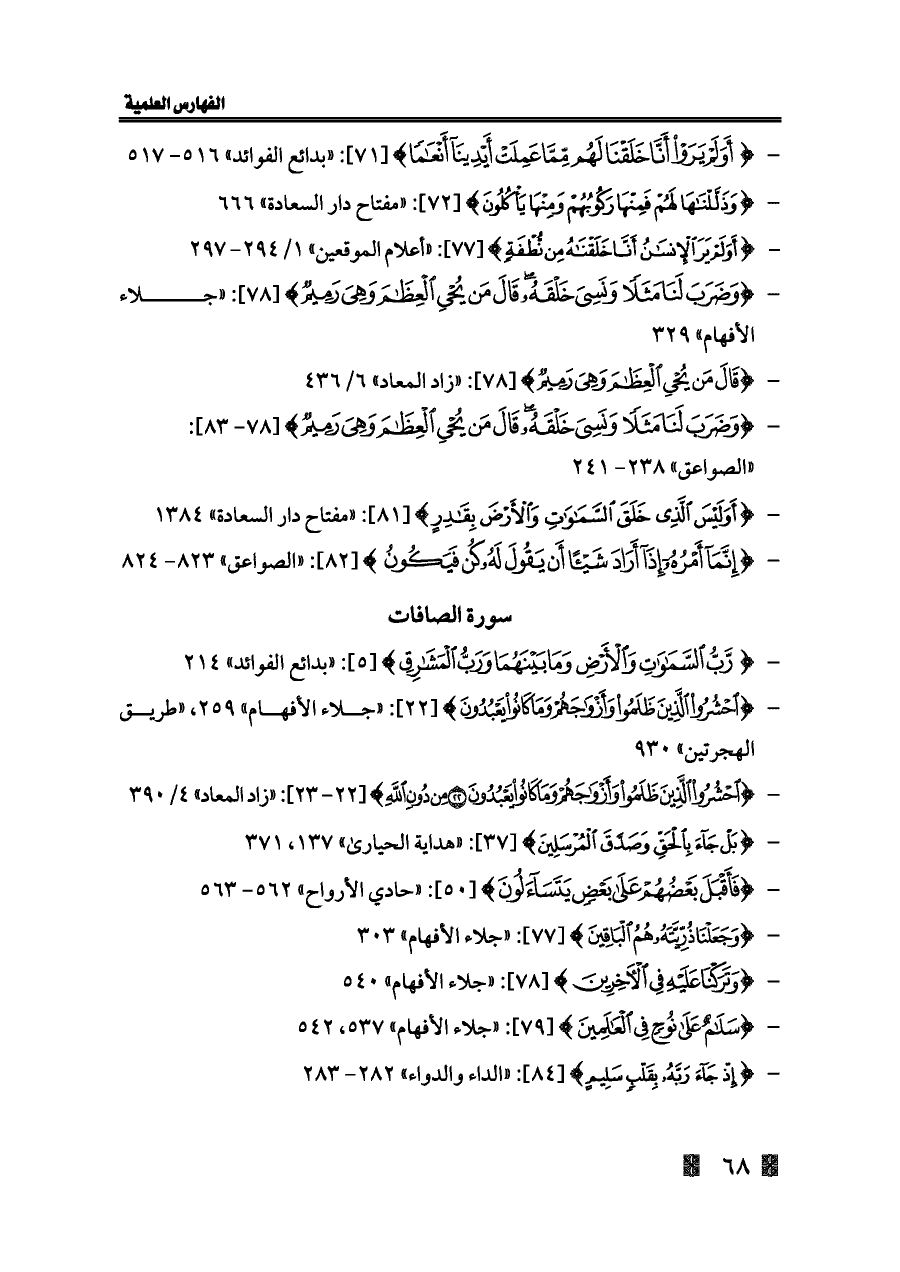 الفهارس العلمية
- ﴿ أَوَلَمْ يَرَوْا أَنَّا خَلَقْنَا لَهُم مِّمَّا عَمِلَتْ أَيْدِينَا أَنْعَامًا﴾ [٧١]: «بدائع الفوائد» ٥١٦- ٥١٧
- ﴿وَذَلَّلْنَاهَا لَهُمْ فَمِنْهَا رَكُوبُهُمْ وَمِنْهَا يَأْكُلُونَ﴾ [٧٢]: «مفتاح دار السعادة» ٦٦٦
- ﴿أَوَلَمْ يَرَ الْإِنسَانُ أَنَّا خَلَقْنَاهُ مِن نُّطْفَةٍ﴾ [٧٧]: «أعلام الموقعين» ١/ ٢٩٤- ٢٩٧
- ﴿وَضَرَبَ لَنَا مَثَلًا وَنَسِيَ خَلْقَهُ ۖ قَالَ مَن يُحْيِ الْعِظَامَ وَهِيَ رَمِيمٌ﴾ [٧٨]: «جـــــلاء
الأفهام» ٣٢٩
- ﴿قَالَ مَن يُحْيِ الْعِظَامَ وَهِيَ رَمِيمٌ﴾ [٧٨]: «زاد المعاد» ٦/ ٤٣٦
- ﴿وَضَرَبَ لَنَا مَثَلًا وَنَسِيَ خَلْقَهُ ۖ قَالَ مَن يُحْيِ الْعِظَامَ وَهِيَ رَمِيمٌ﴾ [٧٨- ٨٣]:
«الصواعق» ٢٣٨- ٢٤١
- ﴿ أَوَلَيْسَ الَّذِي خَلَقَ السَّمَاوَاتِ وَالْأَرْضَ بِقَادِرٍ﴾ [٨١]: «مفتاح دار السعادة» ١٣٨٤
- ﴿إِنَّمَا أَمْرُهُ إِذَا أَرَادَ شَيْئًا أَن يَقُولَ لَهُ كُن فَيَكُونُ ﴾ [٨٢]: «الصواعق» ٨٢٣- ٨٢٤
سورة الصافات
- ﴿ رَّبُّ السَّمَاوَاتِ وَالْأَرْضِ وَمَا بَيْنَهُمَا وَرَبُّ الْمَشَارِقِ ﴾ [٥]: «بدائع الفوائد» ٢١٤
- ﴿احْشُرُوا الَّذِينَ ظَلَمُوا وَأَزْوَاجَهُمْ وَمَا كَانُوا يَعْبُدُونَ ﴾ [٢٢]: «جـلاء الأفهـام» ٢٥٩، «طريـق
الهجرتين» ٩٣٠
- ﴿احْشُرُوا الَّذِينَ ظَلَمُوا وَأَزْوَاجَهُمْ وَمَا كَانُوا يَعْبُدُونَ ۝٢٢ مِن دُونِ اللَّهِ﴾ [٢٢-٢٣]: «زاد المعاد» ٤/ ٣٩٠
- ﴿بَلْ جَاءَ بِالْحَقِّ وَصَدَّقَ الْمُرْسَلِينَ﴾ [٣٧]: «هداية الحيارىٰ» ١٣٧، ٣٧١
- ﴿فَأَقْبَلَ بَعْضُهُمْ عَلَىٰ بَعْضٍ يَتَسَاءَلُونَ﴾ [٥٠]: «حادي الأرواح» ٥٦٢- ٥٦٣
- ﴿وَجَعَلْنَا ذُرِّيَّتَهُ هُمُ الْبَاقِينَ ﴾ [٧٧]: «جلاء الأفهام» ٣٠٣
- ﴿وَتَرَكْنَا عَلَيْهِ فِي الْآخِرِينَ ﴾ [٧٨]: «جلاء الأفهام» ٥٤٠
- ﴿سَلَامٌ عَلَىٰ نُوحٍ فِي الْعَالَمِينَ ﴾ [٧٩]: «جلاء الأفهام» ٥٣٧، ٥٤٢
- ﴿ إِذْ جَاءَ رَبَّهُ بِقَلْبٍ سَلِيمٍ﴾ [٨٤]: «الداء والدواء» ٢٨٢- ٢٨٣
٦٨